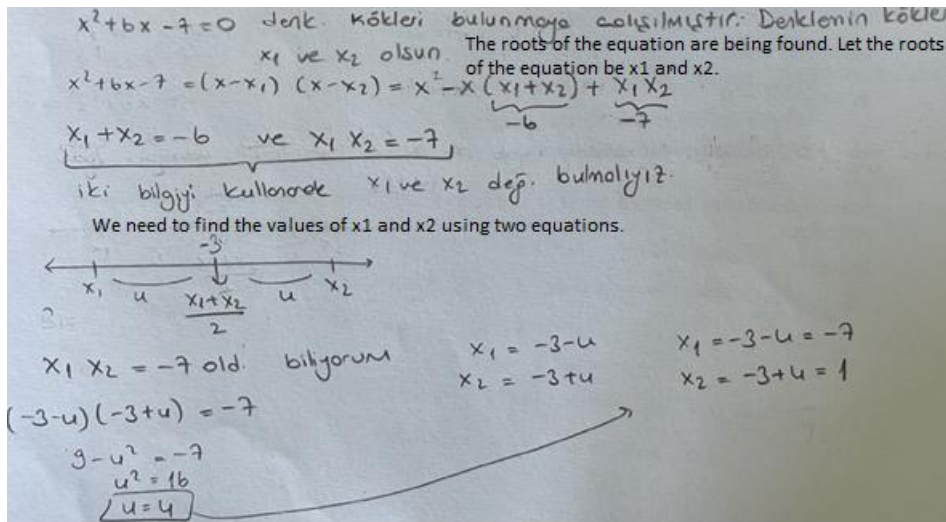 x²+6x-7=0 denk. kökleri bulunmaya çalışılmıştır. Denklemin kökle
x₁ ve x₂ olsun.
The roots of the equation are being found. Let the roots
of the equation be x1 and x2.
x²+6x-7 = (x-x₁) (x-x₂) = x²-x (x₁+x₂) + x₁x₂
-6 -7
x₁+x₂ = -6 ve x₁ x₂ = -7
iki bilgiyi kullanarak x₁ ve x₂ değ. bulmalıyız.
We need to find the values of x1 and x2 using two equations.
-3
x₁ u x₁+x₂ u x₂
2
x₁ x₂ = -7 old. biliyorum
x₁ = -3-u
x₂ = -3+u
x₁ = -3-u = -7
x₂ = -3+u = 1
(-3-u)(-3+u) = -7
9-u² = -7
u² = 16
u = 4